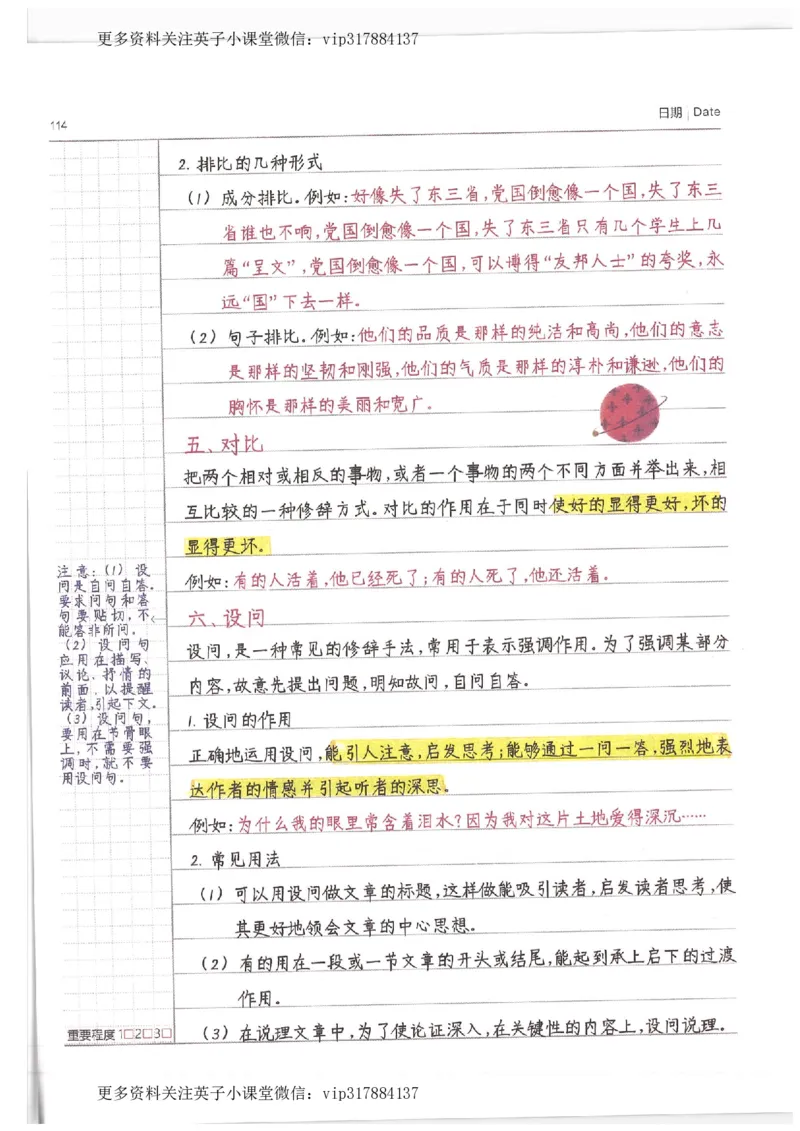 更多资料关注英子小课堂微信：vip317884137
114
日期 Date
2. 排比的几种形式
（1）成分排比。例如：好像失了东三省，党国倒愈像一个国，失了东三
省谁也不响，党国倒愈像一个国，失了东三省只有几个学生上几
篇“呈文”，党国倒愈像一个国，可以博得“友邦人士”的夸奖，永
远“国”下去一样。
（2）句子排比。例如：他们的品质是那样的纯洁和高尚，他们的意志
是那样的坚韧和刚强，他们的气质是那样的淳朴和谦逊，他们的
胸怀是那样的美丽和宽广。
五、对比
把两个相对或相反的事物，或者一个事物的两个不同方面并举出来，相
互比较的一种修辞方式。对比的作用在于同时使好的显得更好，坏的
显得更坏。
例如：有的人活着，他已经死了；有的人死了，他还活着。
六、设问
设问，是一种常见的修辞手法，常用于表示强调作用。为了强调某部分
内容，故意先提出问题，明知故问，自问自答。
1. 设问的作用
正确地运用设问，能引人注意，启发思考；能够通过一问一答，强烈地表
达作者的情感并引起听者的深思。
例如：为什么我的眼里常含着泪水？因为我对这片土地爱得深沉……
2. 常见用法
（1）可以用设问做文章的标题，这样做能吸引读者，启发读者思考，使
其更好地领会文章的中心思想。
（2）有的用在一段或一节文章的开头或结尾，能起到承上启下的过渡
作用。
（3）在说理文章中，为了使论证深入，在关键性的内容上，设问说理。
注意：（1）设
问是自问自答。
要求问句和答
句要贴切，不
能答非所问。
（2）设问句
应用在描写、
议论、抒情的
前面，以提醒
读者，引起下文。
（3）设问句，
要用在节骨眼
上，不需要强
调时，就不要
用设问句。
重要程度 1□2□3□
更多资料关注英子小课堂微信：vip317884137